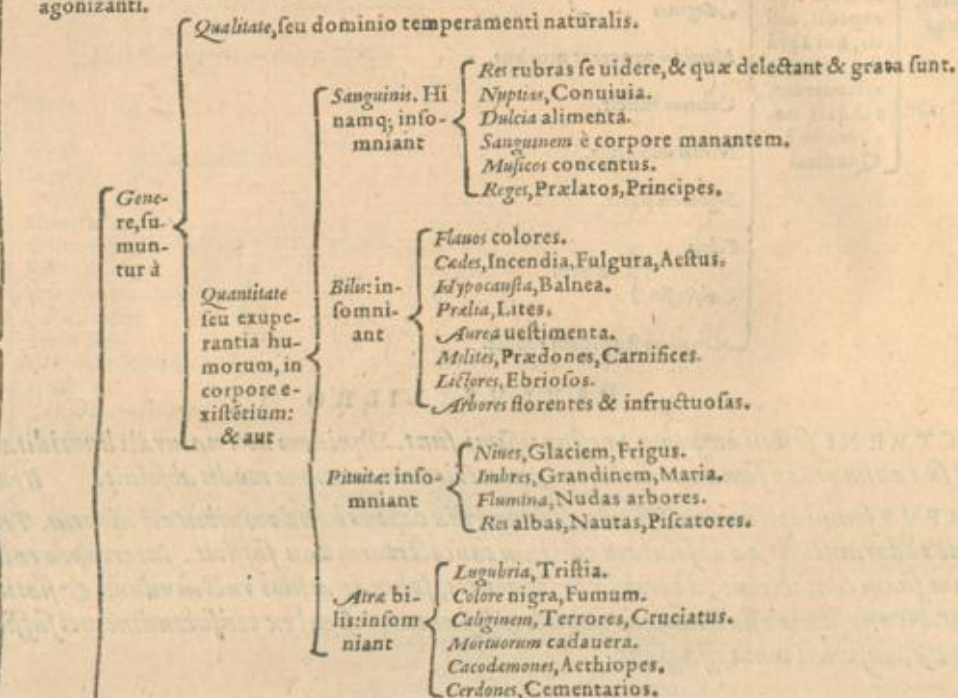 agonizanti.
Qualitate, ſeu dominio temperamenti naturalis.
Gene-
re, ſu-
mun-
tur à
Quantitate
ſeu exupe-
rantia hu-
morum, in
corpore e-
xiſtẽtium:
& aut
Sanguinis. Hi
namq; inſo-
mniant
Res rubras ſe uidere, & quæ delectant & grata ſunt.
Nuptias, Conuiuia.
Dulcia alimenta.
Sanguinem è corpore manantem.
Muſicos concentus.
Reges, Prælatos, Principes.
Bilis: in-
ſomni-
ant
Flauos colores.
Cædes, Incendia, Fulgura, Aeſtus.
Hypocauſta, Balnea.
Prælia, Lites.
Aurea ueſtimenta.
Milites, Prædones, Carnifices.
Lictores, Ebrioſos.
Arbores florentes & infructuoſas.
Pituitæ: inſo-
mniant
Niues, Glaciem, Frigus.
Imbres, Grandinem, Maria.
Flumina, Nudas arbores.
Res albas, Nautas, Piſcatores.
Atræ bi-
lis: inſom
niant
Lugubria, Triſtia.
Colore nigra, Fumum.
Caliginem, Terrores, Cruciatus.
Mortuorum cadauera.
Cacodæmones, Aethiopes.
Cerdones, Cementarios.